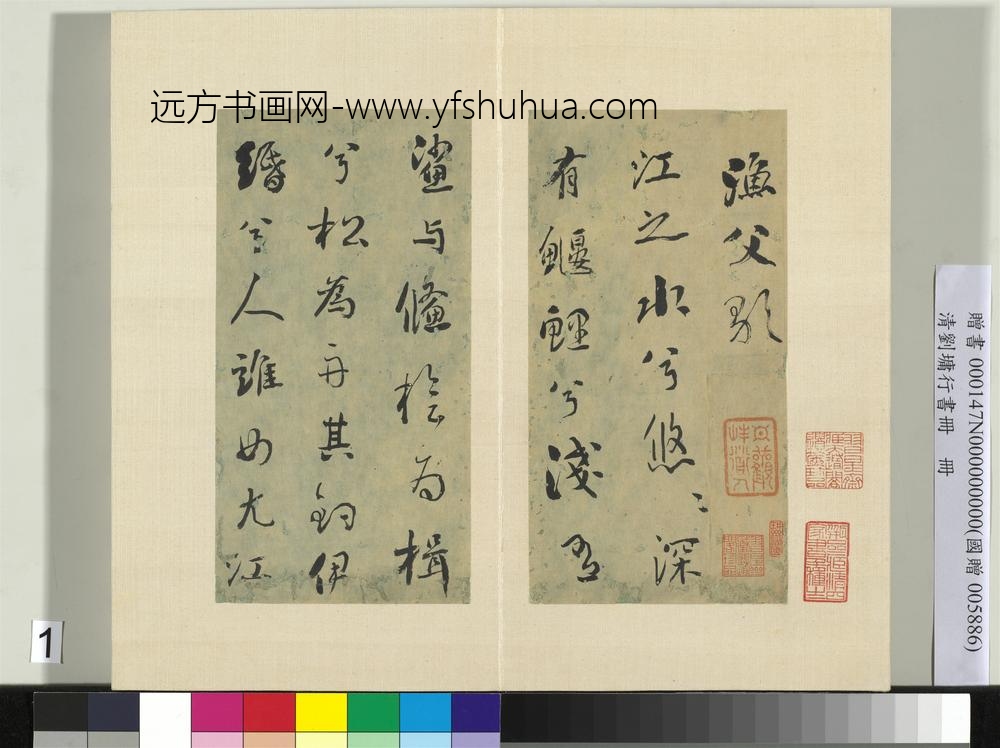 远方书画网-www.yfshuhua.com
漁父歌
江之水兮悠〻深
有鰋鯉兮淺有
鯊與鯈檜為楫
兮松為舟其釣伊
緡兮人誰如尤江
贈書 000147N000000000(國贈 005886)
清劉墉行書冊 冊
1